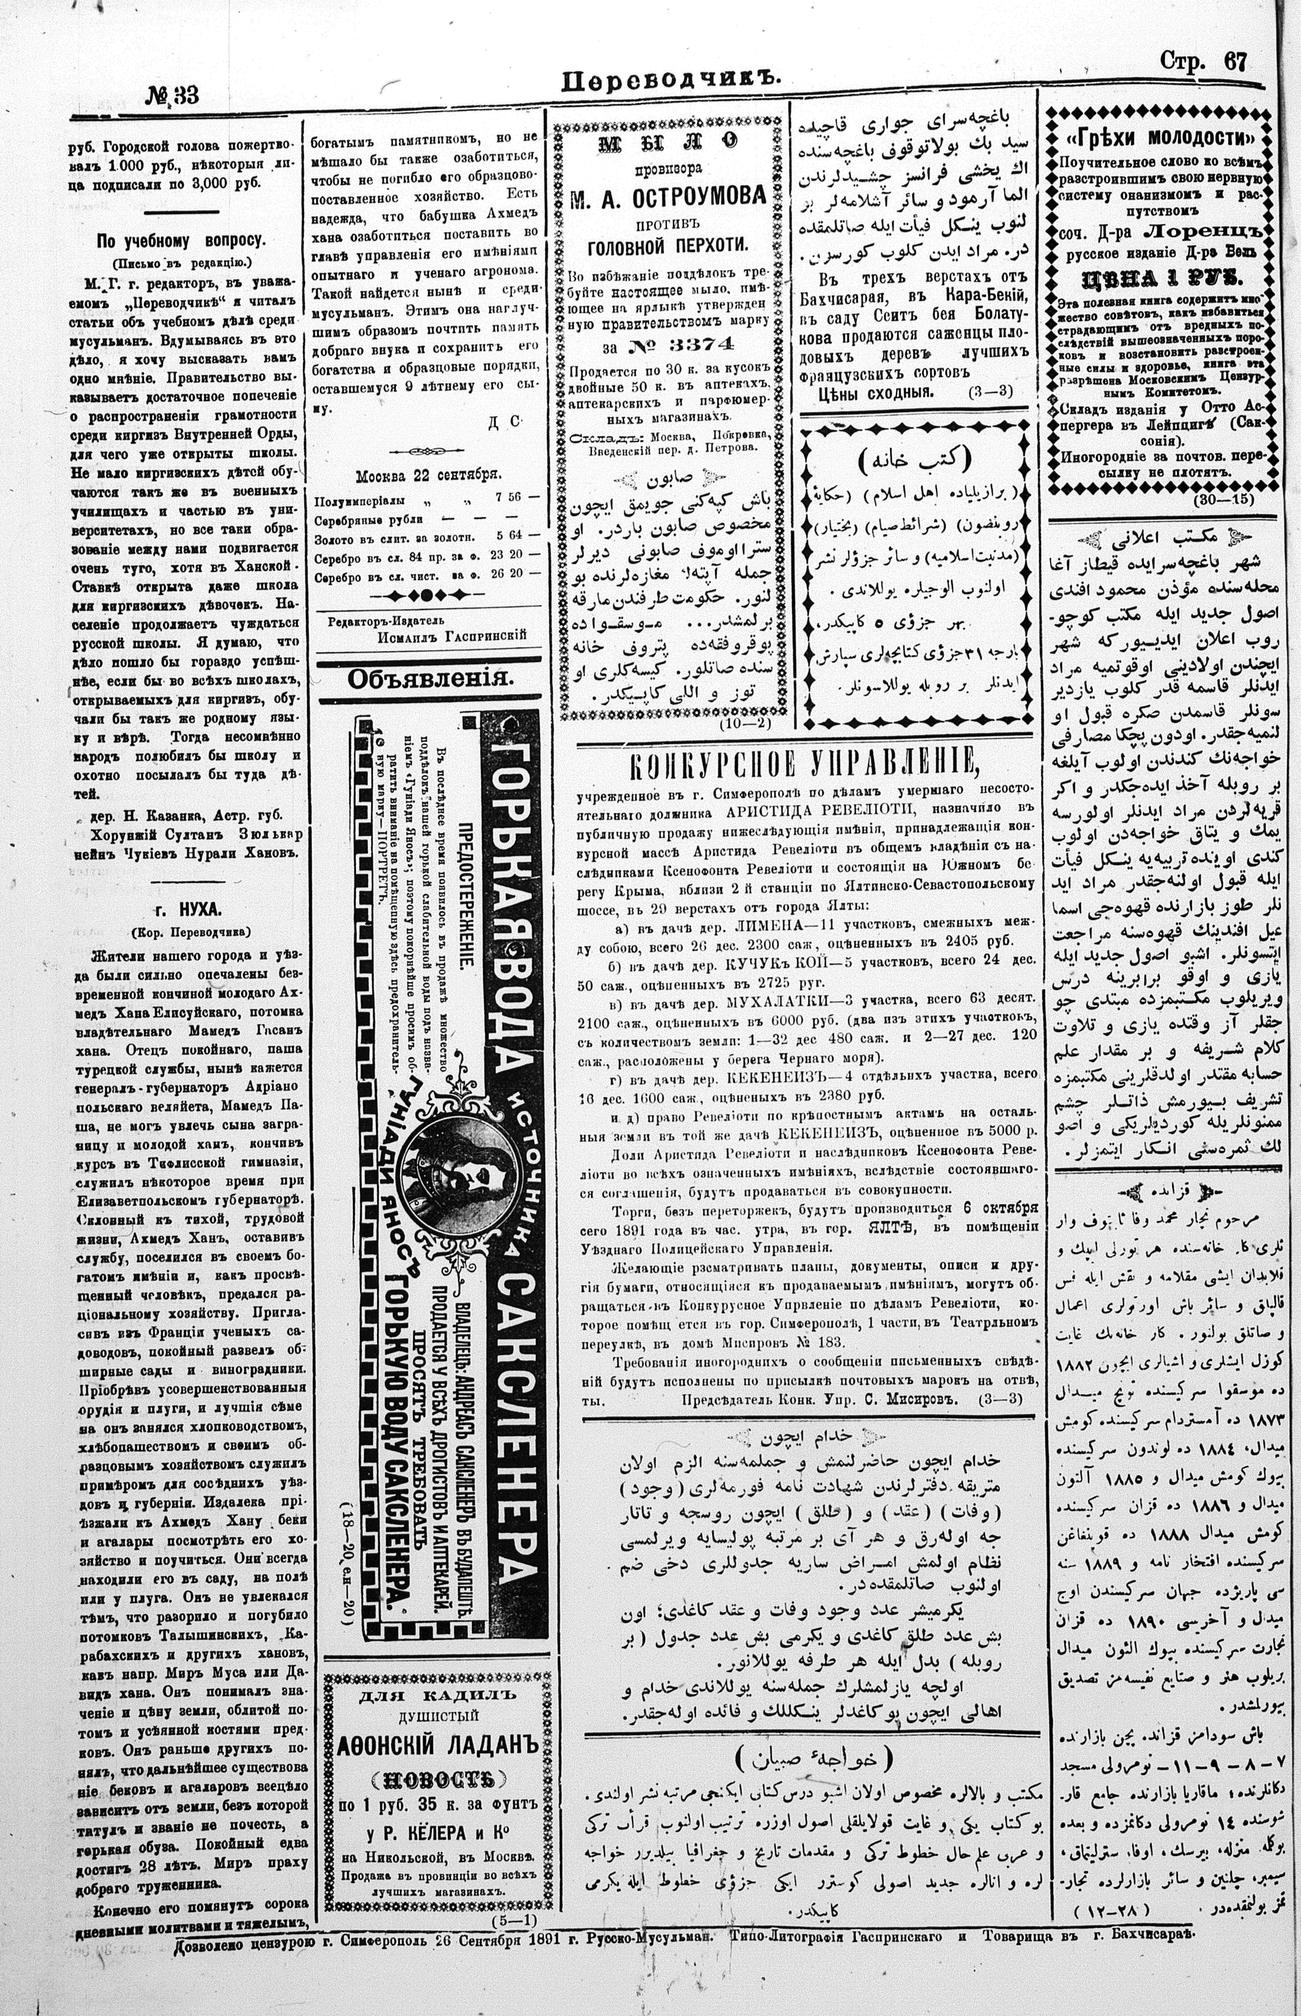 № 33
Переводчикъ.
Стр. 67
руб. Городской голова пожертво-
валъ 1.000 руб., нѣкоторыя ли-
ца подписали по 3,000 руб.
По учебному вопросу.
(Письмо въ редакцію.)
М. Г. г. редакторъ, въ уважа-
емомъ „Переводчикѣ“ я читалъ
статьи объ учебномъ дѣлѣ среди
мусульманъ. Вдумываясь въ это
дѣло, я хочу высказать вамъ
одно мнѣніе. Правительство вы-
казываетъ достаточное попеченіе
о распространеніи грамотности
среди киргизъ Внутренней Орды,
для чего уже открыты школы.
Не мало киргизскихъ дѣтей обу-
чаются такъ же въ военныхъ
училищахъ и частью въ уни-
верситетахъ, но все таки обра-
зованіе между нами подвигается
очень туго, хотя въ Ханской-
Ставкѣ открыта даже школа
для киргизскихъ дѣвочекъ. На-
селеніе продолжаетъ чуждаться
русской школы. Я думаю, что
дѣло пошло бы гораздо успѣш-
нѣе, если бы во всѣхъ школахъ,
открываемыхъ для киргизъ, обу-
чали бы такъ же родному язы-
ку и вѣрѣ. Тогда несомнѣнно
народъ полюбилъ бы школу и
охотно посылалъ бы туда дѣ-
тей.
дер. Н. Казанка, Астр. губ.
Хорунжій Султанъ Зюлькар
нейнъ Чукіевъ Нурали Хановъ.
г. НУХА.
(Кор. Переводчика)
Жители нашего города и уѣз-
да были сильно опечалены без-
временной кончиной молодаго Ах-
медъ Хана Елисуйскаго, потомка
владѣтельнаго Мамедъ Гасанъ
хана. Отецъ покойнаго, паша
турецкой службы, нынѣ кажется
генералъ-губернаторъ Адріано
польскаго велайета, Мамедъ Па-
ша, не могъ увлечь сына загра-
ницу и молодой ханъ, кончивъ
курсъ въ Тифлисской гимназіи,
служилъ нѣкоторое время при
Елизаветпольскомъ губернаторѣ.
Склонный къ тихой, трудовой
жизни, Ахмедъ Ханъ, оставивъ
службу, поселился въ своемъ бо-
гатомъ имѣніи и, какъ просвѣ-
щенный человѣкъ, предался ра-
ціональному хозяйству. Пригла-
сивъ изъ Франціи ученыхъ са-
доводовъ, покойный развелъ об-
ширные сады и виноградники.
Пріобрѣвъ усовершенствованныя
орудія и плуги, и лучшія сѣме
на онъ занялся хлопководствомъ,
хлѣбопашествомъ и своимъ об-
разцовымъ хозяйствомъ служилъ
примѣромъ для сосѣднихъ уѣз-
довъ и губернія. Издалека прі-
ѣзжали къ Ахмедъ Хану беки
и агалары посмотрѣть его хо-
зяйство и поучиться. Они всегда
находили его въ саду, на полѣ
или у плуга. Онъ не увлекался
тѣмъ, что разорило и погубило
потомковъ Талышинскихъ, Ка-
рабахскихъ и другихъ хановъ,
какъ напр. Миръ Муса или Да-
видъ хана. Онъ понималъ зна-
ченіе и цѣну земли, облитой по-
томъ и усѣянной костями пред-
ковъ. Онъ раньше другихъ по-
нялъ, что дальнѣйшее существова
ніе бековъ и агаларовъ всецѣло
зависитъ отъ земли, безъ которой
татулъ и званіе не почесть, а
горькая обуза. Покойный едва
достигъ 28 лѣтъ. Миръ праху
добраго труженника.
Конечно его помянутъ сорока
дневными молитвами и тяжелымъ,
богатымъ памятникомъ, но не
мѣшало бы также озаботиться,
чтобы не погибло его образцово-
поставленное хозяйство. Есть
надежда, что бабушка Ахмедъ
хана озаботиться поставить во
главѣ управленія его имѣніями
опытнаго и ученаго агронома.
Такой найдется нынѣ и среди
мусульманъ. Этимъ она наглуч-
шимъ образомъ почтитъ память
добраго внука и сохранитъ его
богатства и образцовые порядки,
оставшемуся 9 лѣтнему его сы-
ну.
Д С
Москва 22 сентября.
Полуимперіалы „ „ 7 56 —
Серебряные рубли — — —
Золото въ слит. за золотн. 5 64 —
Серебро въ сл. 84 пр. за ф. 23 20 —
Серебро въ сл. чист. за ф. 26 20 —
Редакторъ-Издатель
Исмаилъ Гаспринскій
Объявленія.
ГОРЬКАЯ ВОДА ИСТОЧНИКА САКСЛЕНЕРА
ПРЕДОСТЕРЕЖЕНІЕ.
Въ послѣднее время появилось въ продажѣ множество
поддѣлокъ нашей горькой слабительной воды подъ назва-
ніемъ «Гуніади Яносъ»; поэтому покорнѣйше просимъ об-
ратить вниманіе на помѣщенную здѣсь предохранитель-
ную марку—ПОРТРЕТЪ.
ГУНІАДИ ЯНОСЪ
ВЛАДЕЛЕЦЪ: АНДРЕАСЪ САКСЛЕНЕРЪ ВЪ БУДАПЕШТѢ.
ПРОДАЕТСЯ У ВСѢХЪ ДРОГИСТОВЪ И АПТЕКАРЕЙ.
ПРОСЯТЪ ТРЕБОВАТЬ
ГОРЬКУЮ ВОДУ САКСЛЕНЕРА.
(18—20, е.н—20)
ДЛЯ КАДИЛЪ
ДУШИСТЫЙ
АѲОНСКІЙ ЛАДАНЪ
(НОВОСТЬ)
по 1 руб. 35 к. за фунтъ
у Р. КЁЛЕРА и Ко
на Никольской, въ Москвѣ.
Продажа въ провинціи во всѣхъ
лучшихъ магазинахъ.
(5—1)
МЫЛО
провизора
М. А. ОСТРОУМОВА
ПРОТИВЪ
ГОЛОВНОЙ ПЕРХОТИ.
Во избѣжаніе поддѣлокъ тре-
буйте настоящее мыло, имѣ-
ющее на ярлыкѣ утвержден
ную правительствомъ марку
за № 3374
Продается по 30 к. за кусокъ
двойные 50 к. въ аптекахъ,
аптекарскихъ и парфюмер-
ныхъ магазинахъ.
Складъ: Москва, Покровка,
Введенскій пер. д. Петрова.
صابون
باش كپه‌كنی جویمق ایچون
مخصوص صابون باردر. او
ستراا وموف صابونی دیرلر
جمله آپته‌ك مغازه‌لرنده بو
لنور. حكومت طرفندن مارقه
برلمشدر... موسقواده
بوقروفقه‌ده پتروف خانه
سنده صاتلور. كیسه‌كلری او
توز و اللی كاپیكدر.
(10—2)
باغچه‌سرای جواری قاچیده
سید بك بولاتوقوف باغچه‌سنده
اك یخشی فرانسز چشیدلرندن
الما آرمود و سائر آشلامه‌لر بز
لنوب ینكل فیأت ایله صاتلمقده
در. مراد ایدن كلوب كورسن.
Въ трехъ верстахъ отъ
Бахчисарая, въ Кара-Бекій,
въ саду Сеитъ бея Болату-
кова продаются саженцы пло-
довыхъ деревъ лучшихъ
Французскихъ сортовъ
Цѣны сходныя. (3—3)
(كتب خانه)
(برازیلیاده اهل اسلام) (حكایهٔ
روبنضون) (شرائط صیام) (بختیار)
(مدنیت اسلامیه) و سائر جزؤلر نشر
اولنوب الوجیلره یوللاندی.
بهر جزؤی ٥ كاپیكدر،
بارجه ٣١ جزؤی كتابچه‌لری سپارش
ایدنلر بر روبله یوللاسونلر.
КОНКУРСНОЕ УПРАВЛЕНІЕ,
учрежденное въ г. Симферополѣ по дѣламъ умершаго несосто-
ятельнаго должника АРИСТИДА РЕВЕЛІОТИ, назначило въ
публичную продажу нижеслѣдующія имѣнія, принадлежащія кон-
курсной массѣ Аристида Ревеліоти въ общемъ владѣніи съ на-
слѣдниками Ксенофонта Ревеліоти и состоящія на Южномъ бе
регу Крыма, вблизи 2 й станціи по Ялтинско-Севастопольскому
шоссе, въ 29 верстахъ отъ города Ялты:
а) въ дачѣ дер. ЛИМЕНА—11 участковъ, смежныхъ меж-
ду собою, всего 26 дес. 2300 саж., оцѣненныхъ въ 2405 руб.
б) въ дачѣ дер. КУЧУКЪ КОЙ—5 участковъ, всего 24 дес.
50 саж., оцѣненныхъ въ 2725 руг.
в) въ дачѣ дер. МУХАЛАТКИ—3 участка, всего 63 десят.
2100 саж., оцѣненныхъ въ 6000 руб. (два изъ этихъ участковъ,
съ количествомъ земли: 1—32 дес 480 саж. и 2—27 дес. 120
саж., расположены у берега Чернаго моря).
г) въ дачѣ дер. КЕКЕНЕИЗЪ—4 отдѣльныхъ участка, всего
16 дес. 1600 саж., оцѣненыхъ въ 2380 руб.
и д) право Ревеліоти по крѣпостнымъ актамъ на осталь-
ныя земли въ той же дачѣ КЕКЕНЕИЗЪ, оцѣненное въ 5000 р.
Доли Аристида Ревеліоти и наслѣдниковъ Ксенофонта Реве-
ліоти во всѣхъ означенныхъ имѣніяхъ, вслѣдствіе состоявшаго-
ся соглашенія, будутъ продаваться въ совокупности.
Торги, безъ переторжекъ, будутъ производиться 6 октября
сего 1891 года въ час. утра, въ гор. ЯЛТѢ, въ помѣщеніи
Уѣзднаго Полицейскаго Управленія.
Желающіе рзсматривать планы, документы, описи и дру-
гія бумаги, относящіяся къ продаваемымъ имѣніямъ, могутъ об-
ращаться въ Конкурусное Упрвленіе по дѣламъ Ревеліоти, ко-
торое помѣщ ется въ гор. Симферополѣ, 1 части, въ Театрльномъ
переулкѣ, въ домѣ Мисировъ № 183.
Требованія иногороднихъ о сообщеніи письменныхъ свѣдѣ-
ній будутъ исполнены по присылкѣ почтовыхъ марокъ на отвѣ,
ты. Предсѣдатель Конк. Упр. С. Мисировъ. (3—3)
خدام ایچون
خدام ایچون حاضرلنمش و جمله‌سنه الزم اولان
متریقه دفترلرندن شهادت نامه فورمه‌لری (وجود)
(وفات) (عقد) و (طلق) ایچون روسجه و تاتار
جه اوله‌رق و هر آی بر مرتبه پولیسایه ویرلمسی
نظام اولمش امراض ساریه جدوللری دخی ضم
اولنوب صاتلمقده‌در.
یكرمیشر عدد وجود وفات و عقد كاغدی؛ اون
بش عدد طلق كاغدی و یكرمی بش عدد جدول (بر
روبله) بدل ایله هر طرفه یوللانور.
اولچه یازلمشلرك جمله‌سنه یوللاندی خدام و
اهالی ایچون بو كاغدلر ینكللك و فائده اوله‌جقدر.
(خواجهٔ صبیان)
مكتب و بالالره مخصوص اولان اشبو درس كتابی ایكنجی مرتبه نشر اولندی.
بو كتاب یكی و غایت قولایلقلی اصول اوزره ترتیب اولنوب قرأت تركی
و عربی علم حال خطوط تركی و مقدمات تاریخ و جغرافیا بیلدیرر خواجه
لره و انالره جدید اصولی كوسترر ایكی جزؤی خطوط ایله یكرمی
كاپیكدر.
«Грѣхи молодости»
Поучительное слово ко всѣмъ
разстроившимъ свою нервную
систему онанизмомъ и рас-
путствомъ
соч. Д-ра Лоренцъ
русское изданіе Д-ра Бель
ЦѢНА 1 РУБ.
Эта полезная книга содержитъ мно-
жество совѣтовъ, какъ избавиться
страдающимъ отъ вредныхъ по-
слѣдствій вышеозначенныхъ поро-
ковъ и возстановить разстроен-
ныe силы и здоровье, книга эта
разрѣшена Московскимъ Цензур-
нымъ Комитетомъ.
Складъ изданія у Отто Ас-
пергера въ Лейпцигѣ (Сак-
сонія).
Иногородніе за почтов. пере-
сылку не плотятъ.
(30—15)
مكتب اعلانی
شهر باغچه‌سرایده قیطاز آغا
محله‌سنده مؤذن محمود افندی
اصول جدید ایله مكتب كوچو-
روب اعلان ایدیـیوركه شهر
ایچندن اولادینی اوقوتمیه مراد
ایدنلر قاسمه قدر كلوب یازدیر
سونلر قاسمدن صكره قبول او
لنمیه‌جقدر. اودون پچكا مصارفی
خواجه‌نك كندندن اولوب آیلغه
بر روبله آخذ ایده‌جكدر و اكر
قریه‌لردن مراد ایدنلر اولورسه
یمك و یتاق خواجه‌دن اولوب
كندی اوینده تربیه‌یه ینكل فیأت
ایله قبول اولنه‌جقدر مراد اید
نلر طوز بازارنده قهوه‌جی اسما
عیل افندینك قهوه‌سنه مراجعت
ایتسونلر. اشبو اصول جدید ایله
یازی و اوقو برابرینه درس
ویریلوب مكتبمزده مبتدی چو
جقلر آز وقتده یازی و تلاوت
كلام شریفه و بر مقدار علم
حسابه مقتدر اولدقلرینی مكتبمزه
تشریف بیورمش ذاتلر چشم
ممنونلریله كوردیلركی و اصو
لك ثمره‌سنی انكار ایتمزلر.
قزانده
مرحوم تجار محمد وفا ئایوف وار
ئلری كار خانه‌سنده هر تورلی ایپك و
قلابدان ایشی مقلامه و نقش ایله فس
قالپاق و سائر باش اورتولری اعمال
و صاتلق بولنور. كار خانه‌نك غایت
كوزل ایشلری و اشیالری ایچون ١٨٨٢
ده موسقوا سركیسنده تونج میدال
١٨٧٣ ده آمستردام سركیسنده كومش
میدال، ١٨٨٤ ده لوندون سركیسنده
بیوك كومش میدال و ١٨٨٥ آلتون
میدال و ١٨٨٦ ده قزان سركیسنده
كومش میدال ١٨٨٨ ده قوپنفاغن
سركیسنده افتخار نامه و ١٨٨٩ سنه
سی پاریژده جهان سركیسندن اوج
میدال و آخریسی ١٨٩٠ ده قزان
تجارت سركیسنده بیوك التون میدال
بریلوب هنر و صنایع نفیسه‌مز تصدیق
بیورلمشدر.
باش سودامز قزانده. پچن بازارنده
٧-٨-٩-١١- نومرولی مسجد
دكانلرنده؛ ماقاریا بازارنده جامع قار-
شوسنده ١٤ نومرولی دكانمزده و بعده
بوكله منزله، بیرسك، اوفا، سترلیتماق،
سیمبر، چلنین و سائر بازارلرده تجار-
تمز بولنمقده‌در. (٢٨-١٢)
Дозволено цензурою г. Симферополь 26 Сентября 1891 г. Русско-Мусульман. Типо-Литографія Гаспринскаго и Товарища въ г. Бахчисараѣ.